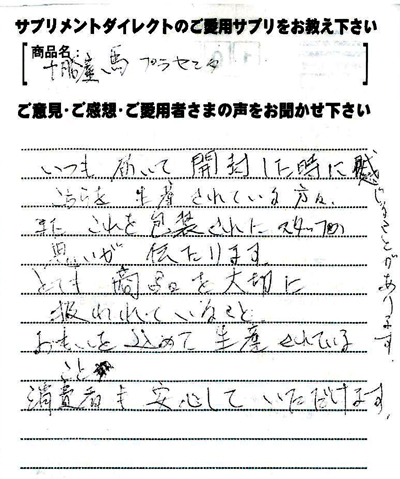 サプリメントダイレクトのご愛用サプリをお教え下さい
商品名:
十勝産馬プラセンタ
ご意見・ご感想・ご愛用者さまの声をお聞かせ下さい
いつも届いて開封した時に感じることがあります。
こちらを生産されている方々、
また これを包装されたスタッフの
思いが 伝たわります。
とても商品を大切に
扱われていること
おもいを込めて生産されている
こと
消費者も安心していただけます。